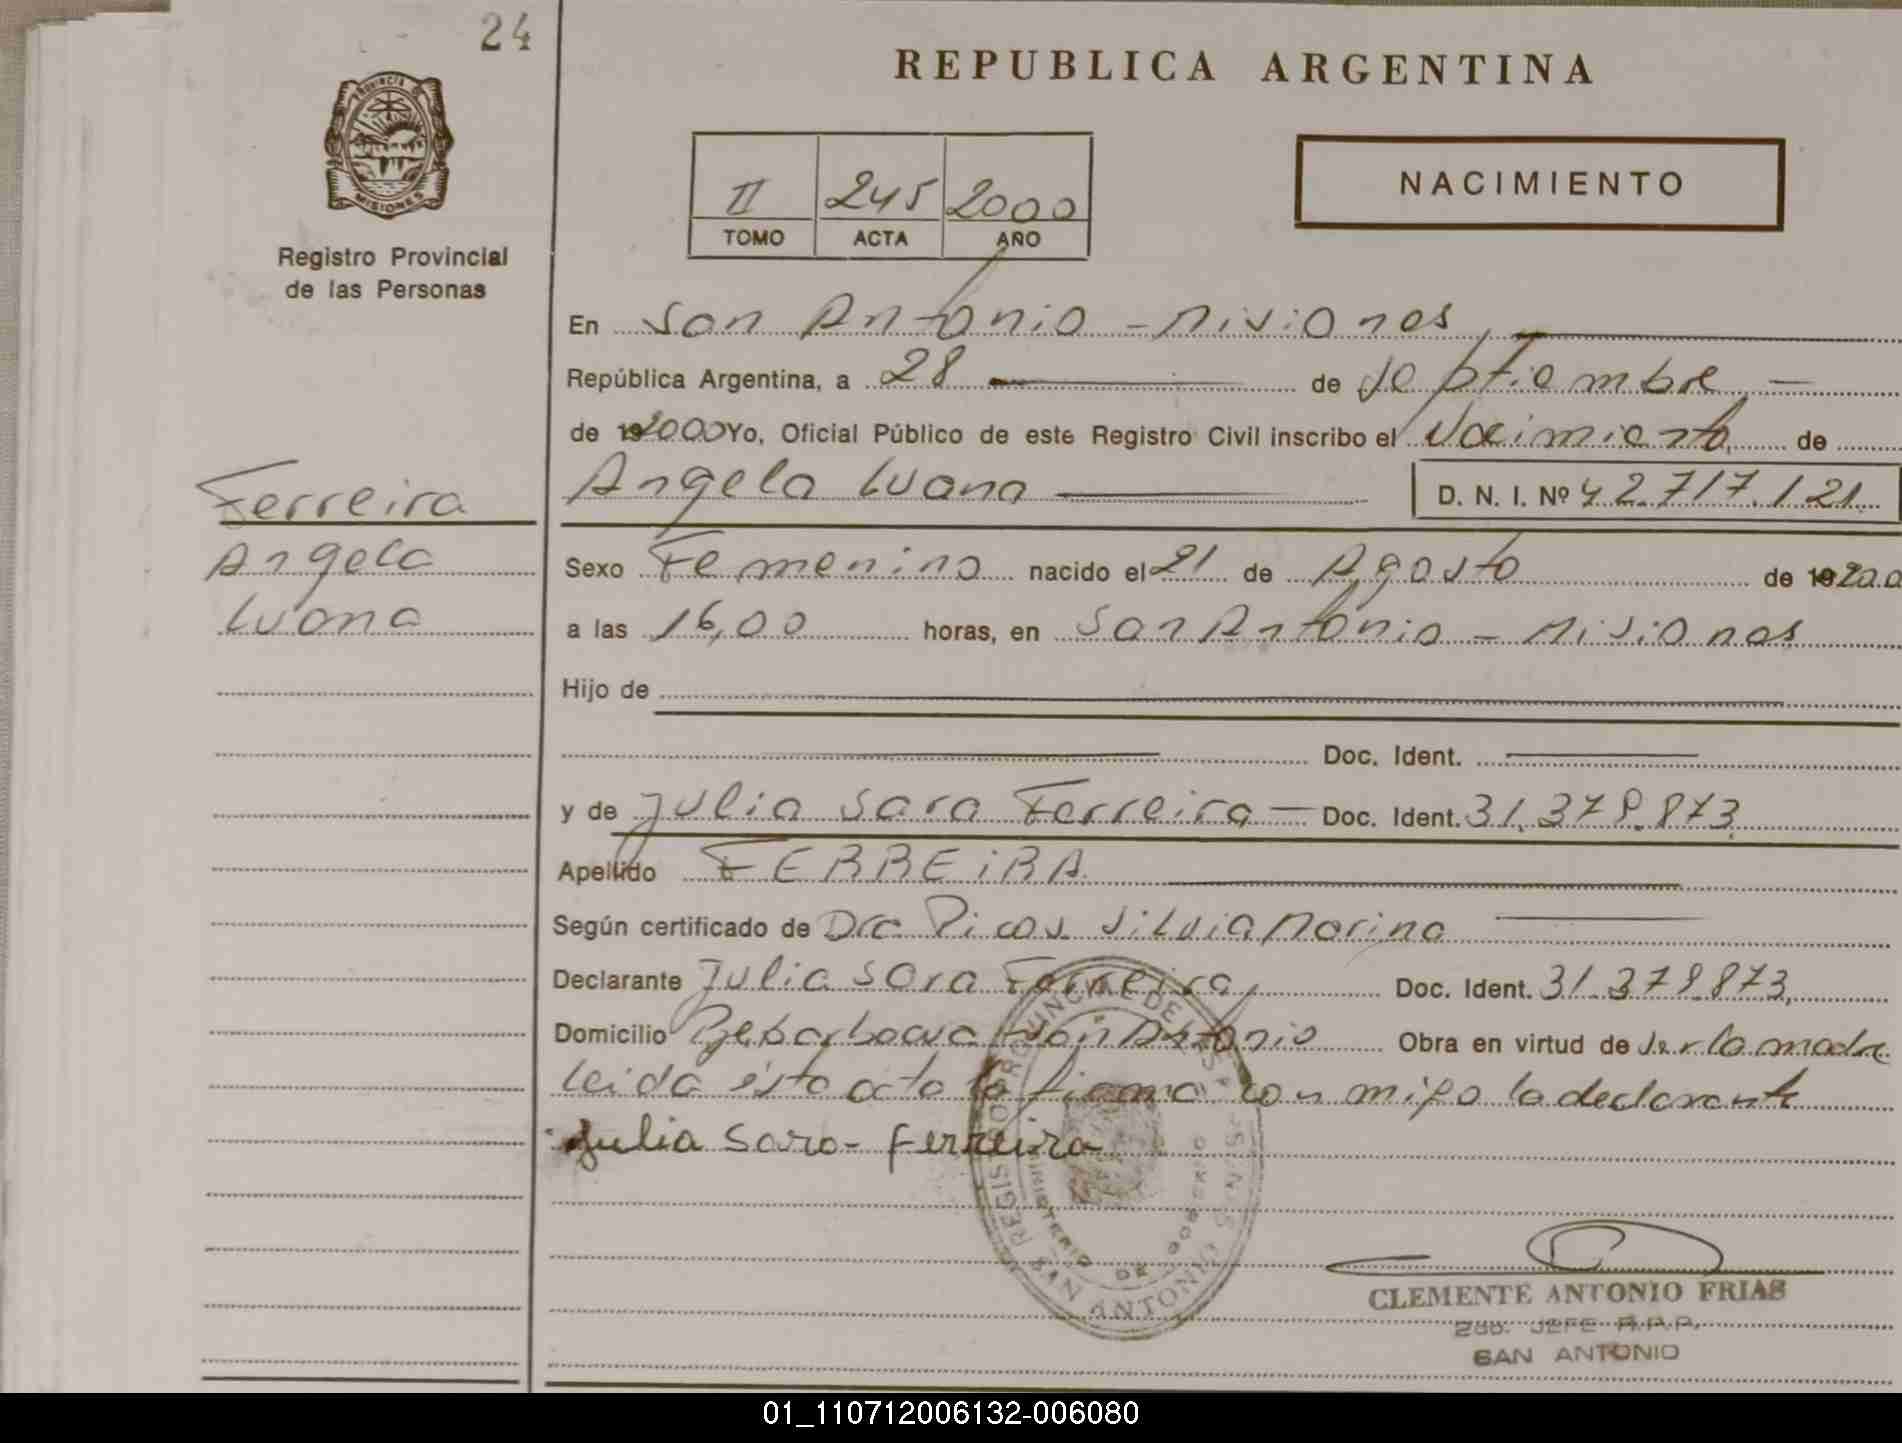 24
REPUBLICA ARGENTINA
PROVINCIA DE MISIONES
Registro Provincial
de las Personas
II 245 2000
TOMO ACTA AÑO
NACIMIENTO
En San Antonio - Misiones
República Argentina, a 28 de Septiembre
de 2000 Yo, Oficial Público de este Registro Civil inscribo el Nacimiento de
Angela Luana D. N. I. Nº 42.717.121
Ferreira
Angela
Luana
Sexo Femenino nacido el 21 de Agosto de 2000
a las 16,00 horas, en San Antonio - Misiones
Hijo de
Doc. Ident.
y de Julia Sara Ferreira Doc. Ident. 31.379.873
Apellido FERREIRA
Según certificado de Dra Picos Silvia Marina
Declarante Julia Sara Ferreira, Doc. Ident. 31.379.873,
Domicilio San Antonio Obra en virtud de ser la madre
leida ésta acta la firma con migo la declarante
Julia Sara - Ferreira
REGISTRO PROVINCIAL DE LAS PERSONAS
MINISTERIO DE GOBIERNO
SAN ANTONIO
CLEMENTE ANTONIO FRIAS
2do. JEFE R.P.P.
SAN ANTONIO
01_110712006132-006080